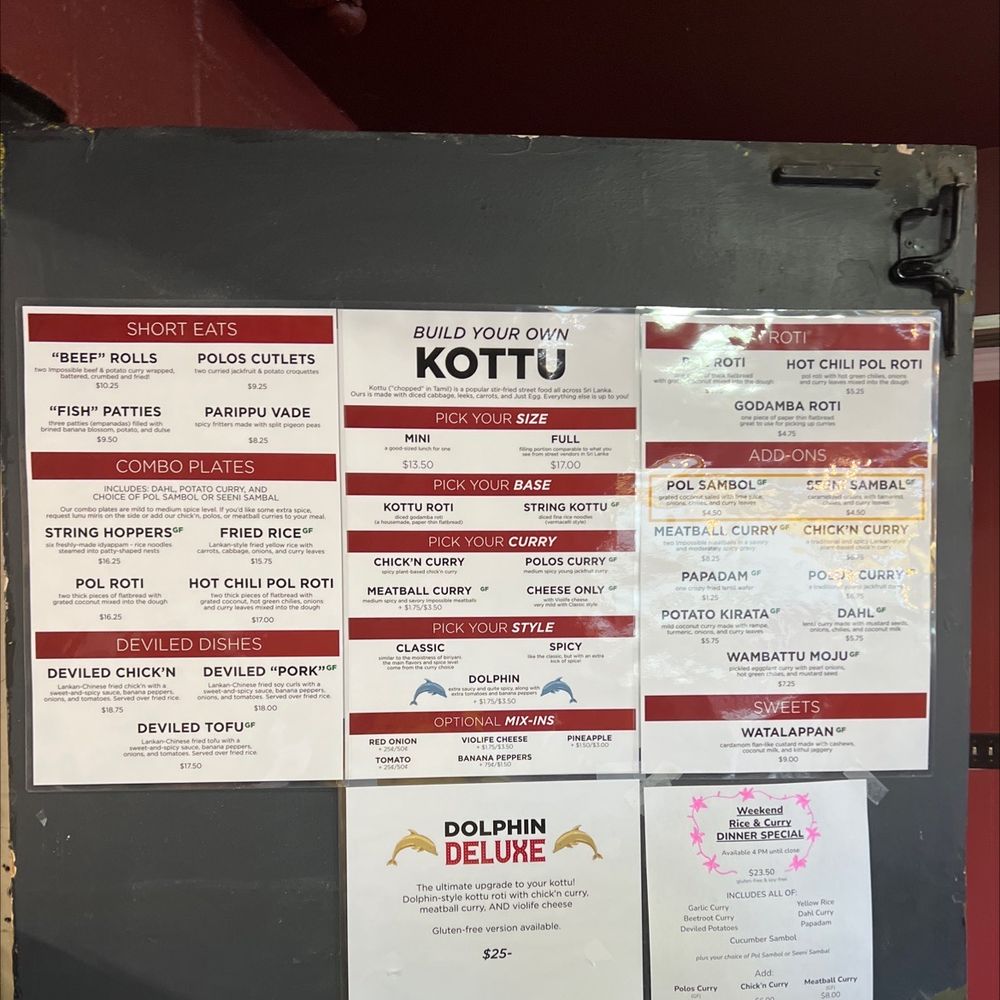 SHORT EATS
"BEEF" ROLLS
two Impossible beef & potato curry wrapped,
battered, crumbed and fried!
$10.25
POLOS CUTLETS
two curried jackfruit & potato croquettes
$9.25
"FISH" PATTIES
three patties (empanadas) filled with
brined banana blossom, potato, and dulse
$9.50
PARIPPU VADE
spicy fritters made with split pigeon peas
$8.25
COMBO PLATES
INCLUDES: DAHL, POTATO CURRY, AND
CHOICE OF POL SAMBOL OR SEENI SAMBOL
Our combo plates are mild to medium spice level. If you'd like some extra spice,
request lunu miris on the side or add our chick'n, polos, or meatball curries to your meal.
STRING HOPPERS GF
six freshly-made idyappam - rice noodles
steamed into patty-shaped nests
$16.25
FRIED RICE GF
Lankan-style fried yellow rice with
carrots, cabbage, onions, and curry leaves
$15.75
POL ROTI
two thick pieces of flatbread with
grated coconut mixed into the dough
$16.25
HOT CHILI POL ROTI
two thick pieces of flatbread with
grated coconut, hot green chilies, onions
and curry leaves mixed into the dough
$17.00
DEVILED DISHES
DEVILED CHICK'N
Lankan-Chinese fried chick'n with a
sweet-and-spicy sauce, banana peppers,
onions, and tomatoes. Served over fried rice.
$18.75
DEVILED "PORK" GF
Lankan-Chinese fried soy curls with a
sweet-and-spicy sauce, banana peppers,
onions, and tomatoes. Served over fried rice.
$18.00
DEVILED TOFU GF
Lankan-Chinese fried tofu with a
sweet-and-spicy sauce, banana peppers,
onions, and tomatoes. Served over fried rice.
$17.50
BUILD YOUR OWN
KOTTU
Kottu ("chopped" in Tamil) is a popular stir-fried street food all across Sri Lanka.
Ours is made with diced cabbage, leeks, carrots, and Just Egg. Everything else is up to you!
PICK YOUR SIZE
MINI
a good-sized lunch for one
$13.50
FULL
filling portion comparable to what you
see from street vendors in Sri Lanka
$17.00
PICK YOUR BASE
KOTTU ROTI
diced godamba roti
(a housemade, paper thin flatbread)
STRING KOTTU GF
diced fine rice noodles
(vermacelli style)
PICK YOUR CURRY
CHICK'N CURRY
spicy plant-based chick'n curry
POLOS CURRY GF
medium spicy young jackfruit curry
MEATBALL CURRY GF
medium spicy and savory Impossible meatballs
+ $1.75/$3.50
CHEESE ONLY GF
with Violife cheese
very mild with Classic style
PICK YOUR STYLE
CLASSIC
similar to the moistness of biriyani,
the main flavors and spice level
come from the curry choice
SPICY
like the classic, but with an extra
kick of spice!
DOLPHIN
extra saucy and quite spicy, along with
extra tomatoes and banana peppers
+ $1.75/$3.50
OPTIONAL MIX-INS
RED ONION
+ 25¢/50¢
VIOLIFE CHEESE
+ $1.75/$3.50
PINEAPPLE
+ $1.50/$3.00
TOMATO
+ 25¢/50¢
BANANA PEPPERS
+ 75¢/$1.50
ROTI
ROTI
thick flatbread
mixed into the dough
HOT CHILI POL ROTI
pol roti with hot green chilies, onions
and curry leaves mixed into the dough
$5.25
GODAMBA ROTI
one piece of paper thin flatbread
great to use for picking up curries
$4.75
ADD-ONS
POL SAMBOL GF
grated coconut salad with lime juice,
onions, chilies, and curry leaves
$4.50
SEENI SAMBAL GF
caramelized onions with tamarind,
chilies, and curry leaves
$4.50
MEATBALL CURRY GF
two Impossible meatballs in a savory
and moderately spicy gravy
$8.25
CHICK'N CURRY
a traditional and spicy Lankan-style
plant-based chick'n curry
$6.75
PAPADAM GF
one crispy fried lentil wafer
$1.25
POLOS CURRY GF
jackfruit curry
POTATO KIRATA GF
mild coconut curry made with rampe,
turmeric, onions, and curry leaves
$5.75
DAHL GF
lentil curry made with mustard seeds,
onions, chilies, and coconut milk
$5.75
WAMBATTU MOJU GF
pickled eggplant curry with pearl onions,
hot green chilies, and mustard seed
$7.25
SWEETS
WATALAPPAN GF
cardamom flan-like custard made with cashews,
coconut milk, and kithul jaggery
$9.00
DOLPHIN
DELUXE
The ultimate upgrade to your kottu!
Dolphin-style kottu roti with chick'n curry,
meatball curry, AND violife cheese
Gluten-free version available.
$25-
Weekend
Rice & Curry
DINNER SPECIAL
Available 4 PM until close
$23.50
gluten-free & soy-free
INCLUDES ALL OF:
Garlic Curry
Beetroot Curry
Deviled Potatoes
Yellow Rice
Dahl Curry
Papadam
Cucumber Sambol
plus your choice of Pol Sambol or Seeni Sambal
Add:
Polos Curry
(GF)
Chick'n Curry
$6.00
Meatball Curry
(GF)
$8.00